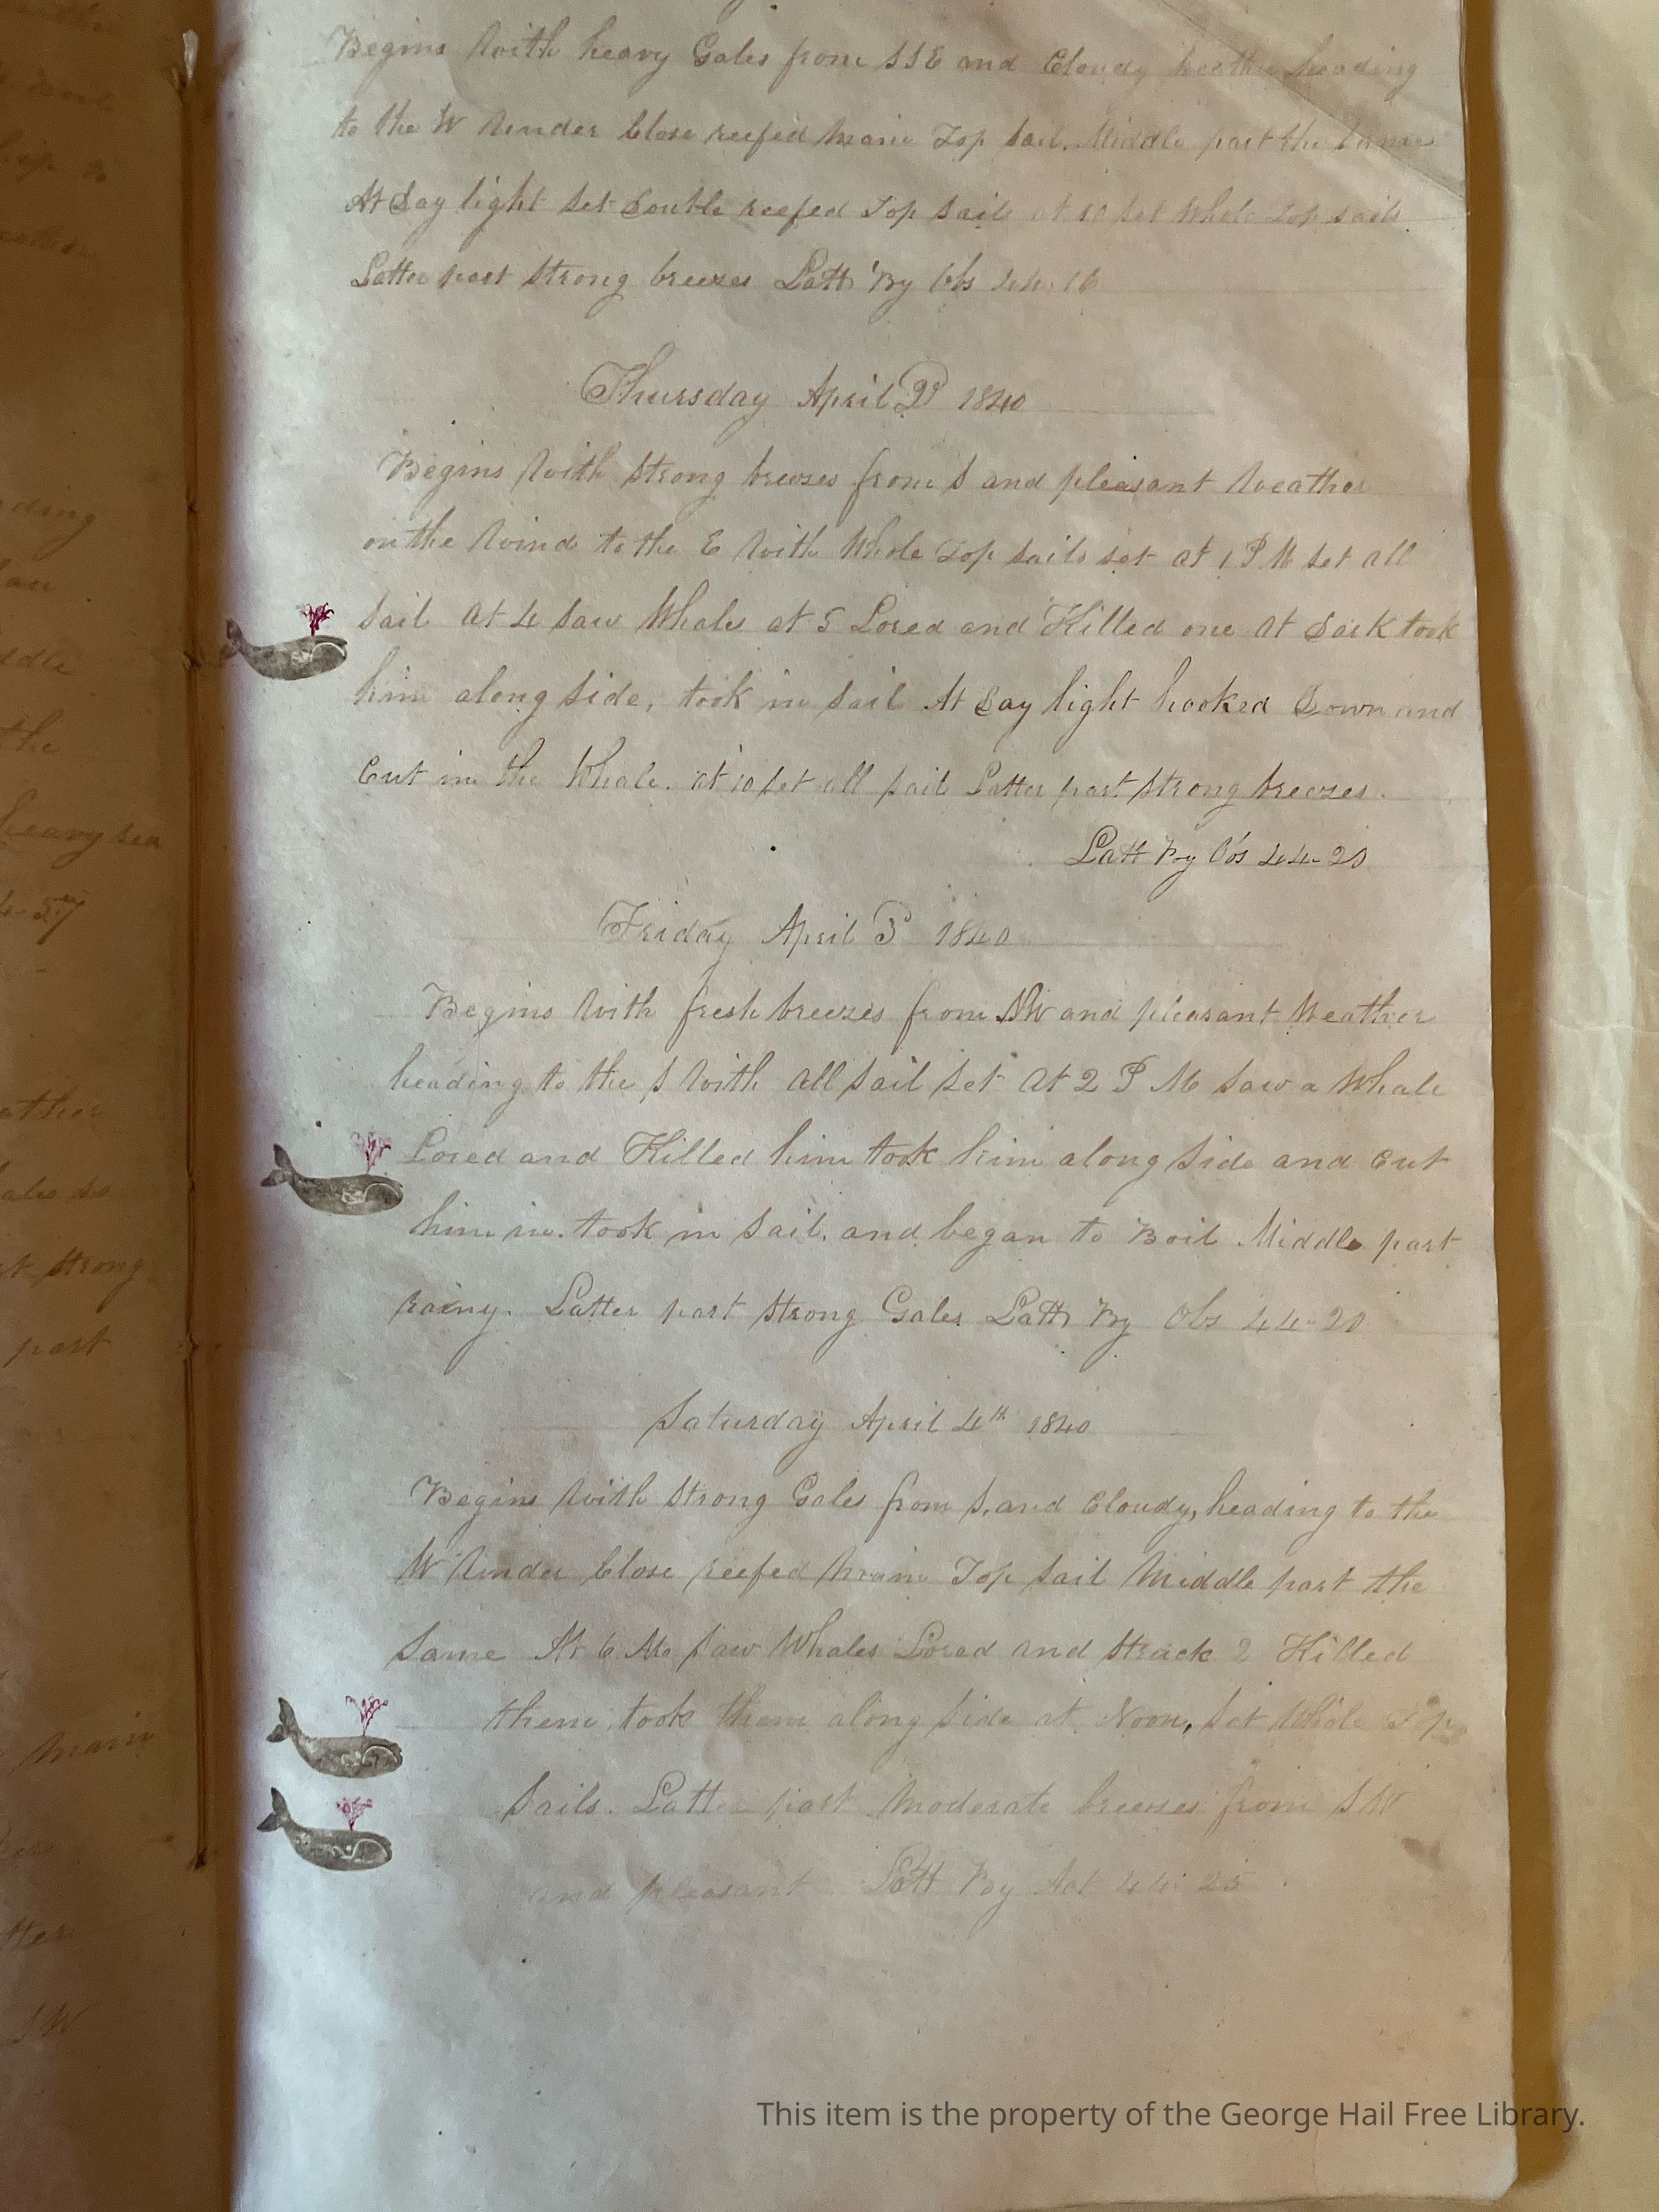 Begins With heavy Gales from SSE and Cloudy heading
to the W Under Close reefed Main Top Sail. Middle part the Same
At Day light Set Double reefed Top Sails at 10 Set Whole Top sails
Latter part Strong breezes Latt By Obs 44-16
Thursday April 2d 1840
Begins With Strong breezes from S and pleasant Weather
on the Wind to the E With Whole Top Sails set at 1 P M Set all
Sail At 4 Saw Whales at 5 Lored and Killed one At Dark took
him along Side, took in Sail At Day light hooked Down and
Cut in the Whale. at 10 Set all Sail Latter part Strong breezes.
Latt By Obs 44-20
Friday April 3d 1840
Begins With fresh breezes from NW and pleasant Weather
heading to the S With all Sail Set At 2 P M Saw a Whale
Lored and Killed him took him along Side and Cut
him in. took in Sail. and began to Boil Middle part
rainy. Latter part Strong Gales Latt By Obs 44-20
Saturday April 4th 1840
Begins With Strong Gales from S. and Cloudy, heading to the
W Under Close reefed Main Top Sail Middle part the
Same At 6 Saw Whales Lored and Struck 2 Killed
them, took them along Side at Noon, Set Whole Top
Sails. Latter part Moderate breezes from SW
and pleasant Latt By 44 25
ding
ddle
the
heavy sea
57
ather
t Strong
part
main
tter
SW
This item is the property of the George Hail Free Library.